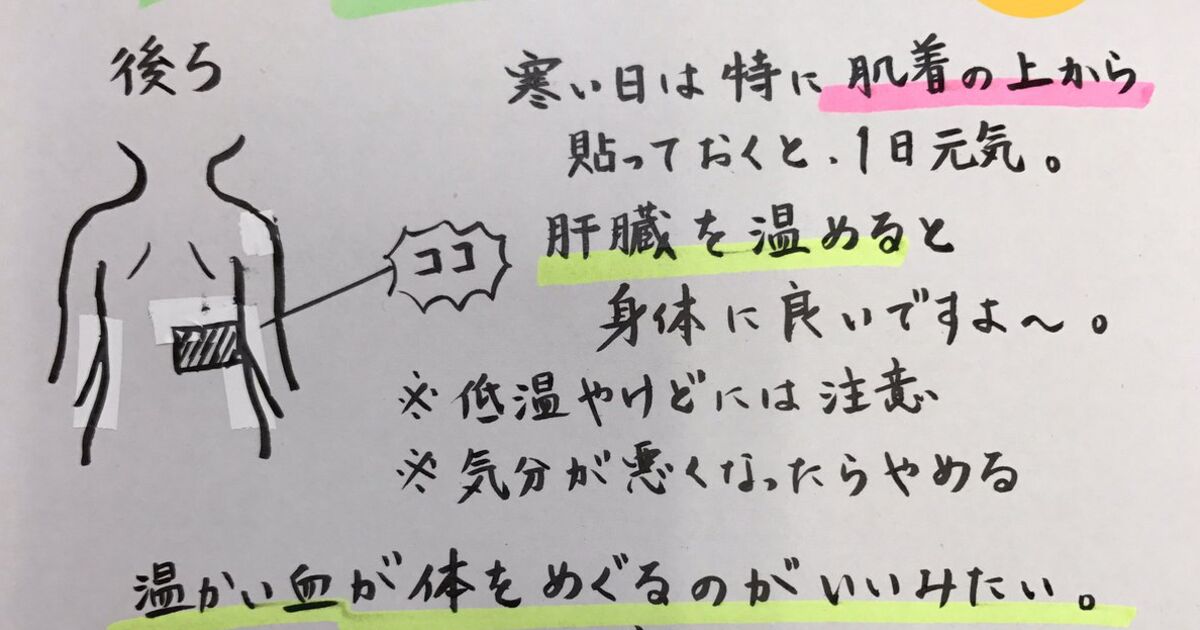 後ろ
寒い日は特に肌着の上から
貼っておくと、1日元気。
ココ
肝臓を温めると
身体に良いですよ〜。
※低温やけどには注意
※気分が悪くなったらやめる
温かい血が体をめぐるのがいいみたい。